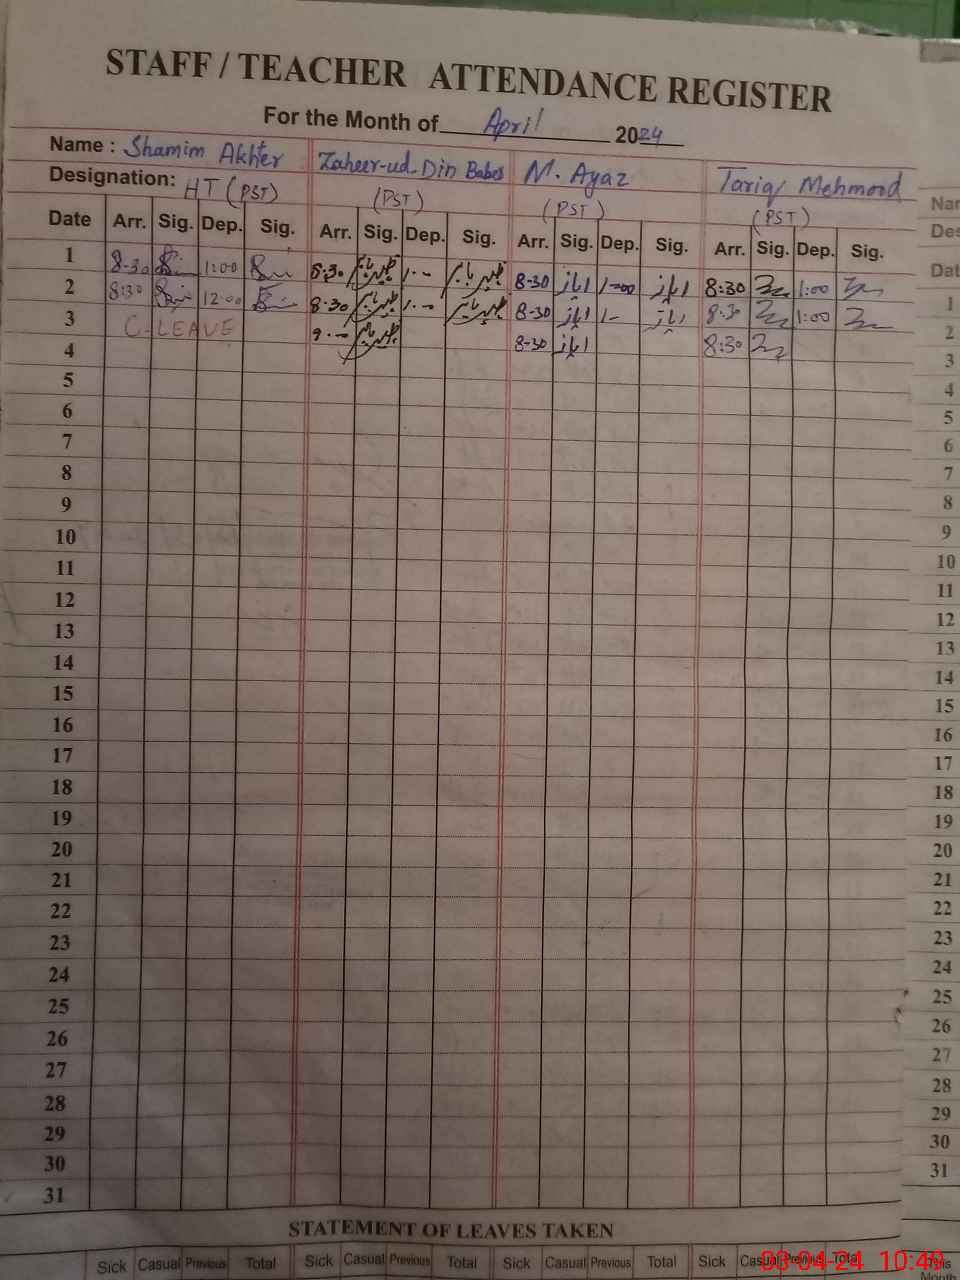 STAFF / TEACHER ATTENDANCE REGISTER
For the Month of April 2024
Name : Shamim Akhter Zaheer-ud-Din Baber M. Ayaz Tariq Mehmood
Designation: HT (PST) (PST) (PST) (PST)
Date Arr. Sig. Dep. Sig. Arr. Sig. Dep. Sig. Arr. Sig. Dep. Sig. Arr. Sig. Dep. Sig.
1 8-30 1:00 8:30 1:00 8-30 ایاز 1-00 ایاز 8:30 1:00
2 8:30 12:00 8:30 1:00 8-30 ایاز 1- ایاز 8:30 1:00
3 C-LEAVE 9:00 8-30 ایاز 8:30
4
5
6
7
8
9
10
11
12
13
14
15
16
17
18
19
20
21
22
23
24
25
26
27
28
29
30
31
STATEMENT OF LEAVES TAKEN
Sick Casual Previous Total Sick Casual Previous Total Sick Casual Previous Total Sick Casual Previous Total
03-04-24 10:49
Nar
Des
Dat
1
2
3
4
5
6
7
8
9
10
11
12
13
14
15
16
17
18
19
20
21
22
23
24
25
26
27
28
29
30
31
This
Month